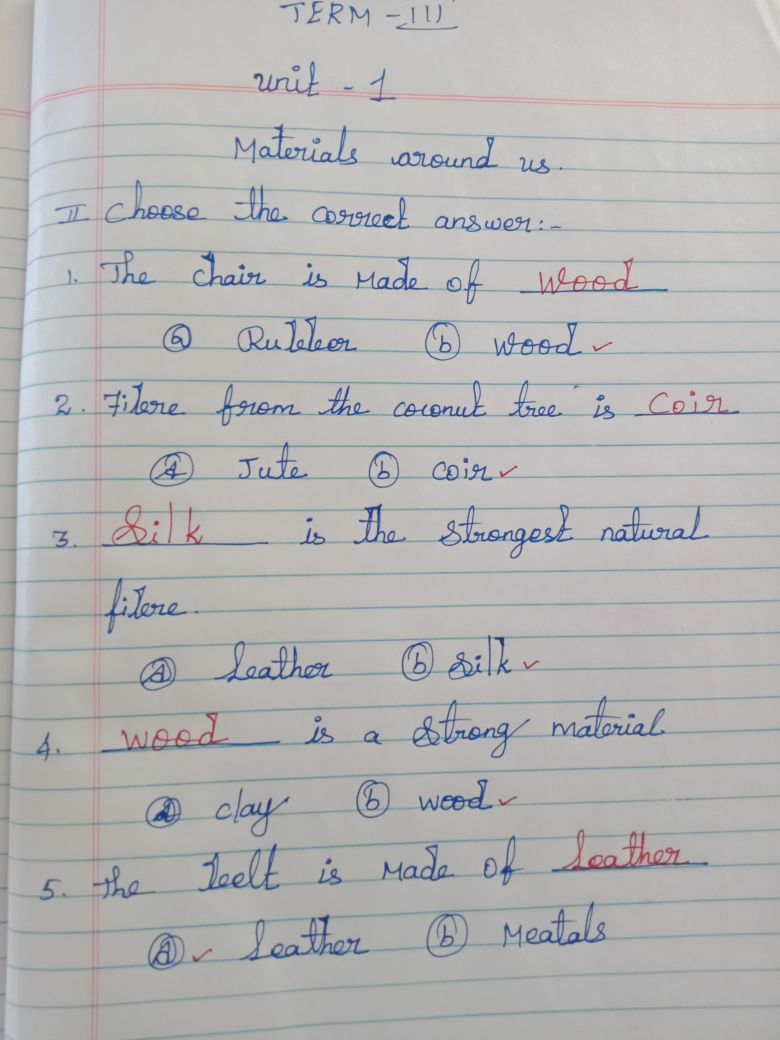 TERM - III
Unit - 1
Materials around us.
II Choose the correct answer:-
1. The chair is Made of wood
a Rubber b wood ✓
2. Fibre from the coconut tree is Coir
a Jute b coir ✓
3. Silk is the strongest natural
fibre.
a Leather b silk ✓
4. wood is a strong material
a clay b wood ✓
5. the belt is Made of Leather
a ✓ Leather b Meatals